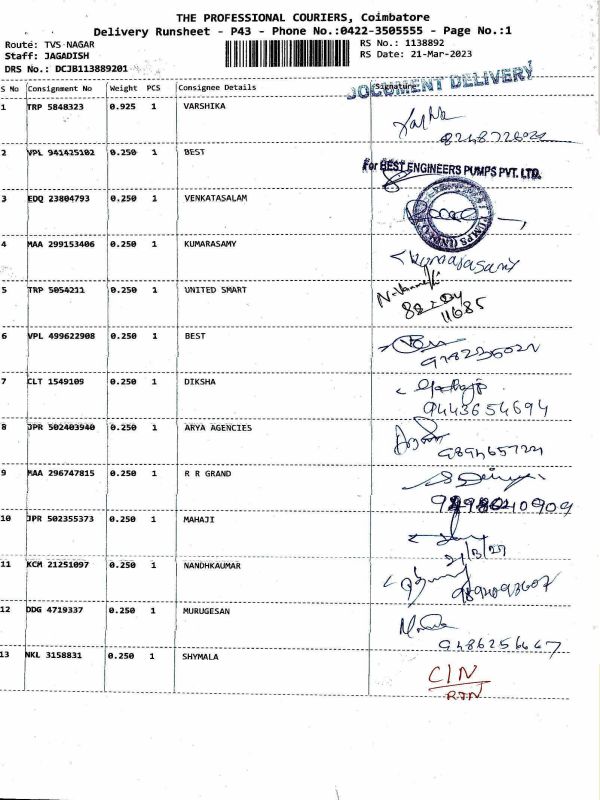 THE PROFESSIONAL COURIERS, Coimbatore
Delivery Runsheet - P43 - Phone No.:0422-3505555 - Page No.:1
Route: TVS NAGAR
RS No.: 1138892
Staff: JAGADISH
RS Date: 21-Mar-2023
DRS No.: DCJB113889201
DOCUMENT DELIVERY
S No Consignment No Weight PCS Consignee Details Signature
1 TRP 5848323 0.925 1 VARSHIKA
2 VPL 941425102 0.250 1 BEST
For BEST ENGINEERS PUMPS PVT. LTD.
3 EDQ 23804793 0.250 1 VENKATASALAM
4 MAA 299153406 0.250 1 KUMARASAMY
Kumarasamy
5 TRP 5054211 0.250 1 UNITED SMART
11685
6 VPL 499622908 0.250 1 BEST
7 CLT 1549109 0.250 1 DIKSHA
9443654694
8 JPR 502403940 0.250 1 ARYA AGENCIES
9 MAA 296747815 0.250 1 R R GRAND
10 JPR 502355373 0.250 1 MAHAJI
11 KCM 21251097 0.250 1 NANDHKAUMAR
12 DDG 4719337 0.250 1 MURUGESAN
9486256647
13 NKL 3158831 0.250 1 SHYMALA
C/N
RTN